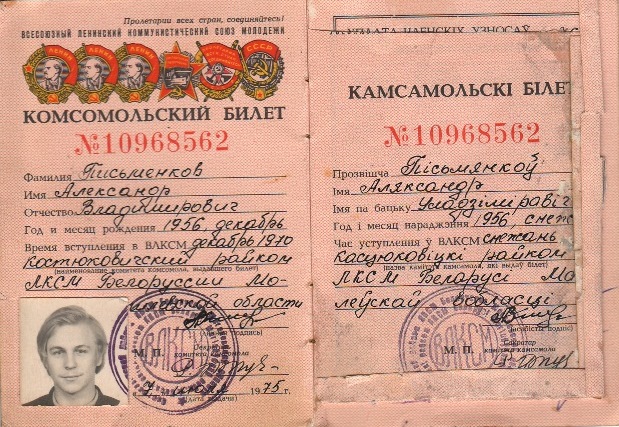 Пролетарии всех стран, соединяйтесь!
ВСЕСОЮЗНЫЙ ЛЕНИНСКИЙ КОММУНИСТИЧЕСКИЙ СОЮЗ МОЛОДЕЖИ
КОМСОМОЛЬСКИЙ БИЛЕТ
№10968562
Фамилия Письменков
Имя Александр
Отчество Владимирович
Год и месяц рождения 1956, декабрь
Время вступления в ВЛКСМ декабрь 1970
Костюковичский райком
(наименование комитета комсомола, выдавшего билет)
ЛКСМ Белоруссии Мо-
гилевской области
(личная подпись)
М. П.
Секретарь
комитета комсомола
1975 г.
(дата выдачи)
ВЛКСМ
ЧЛЕНСКІХ УЗНОСАЎ
КАМСАМОЛЬСКІ БІЛЕТ
№10968562
Прозвішча Пісьмянкоў
Імя Аляксандр
Імя па бацьку Уладзіміравіч
Год і месяц нараджэння 1956, снеж
Час уступлення ў ВЛКСМ снежань
Касцюковіцкі райком
(назва камітэта камсамола, які выдаў білет)
ЛКСМ Беларусі Ма
лёўскай вобласці
(асабісты подпіс)
М. П.
Сакратар
камітэта камсамола
ВЛКСМ